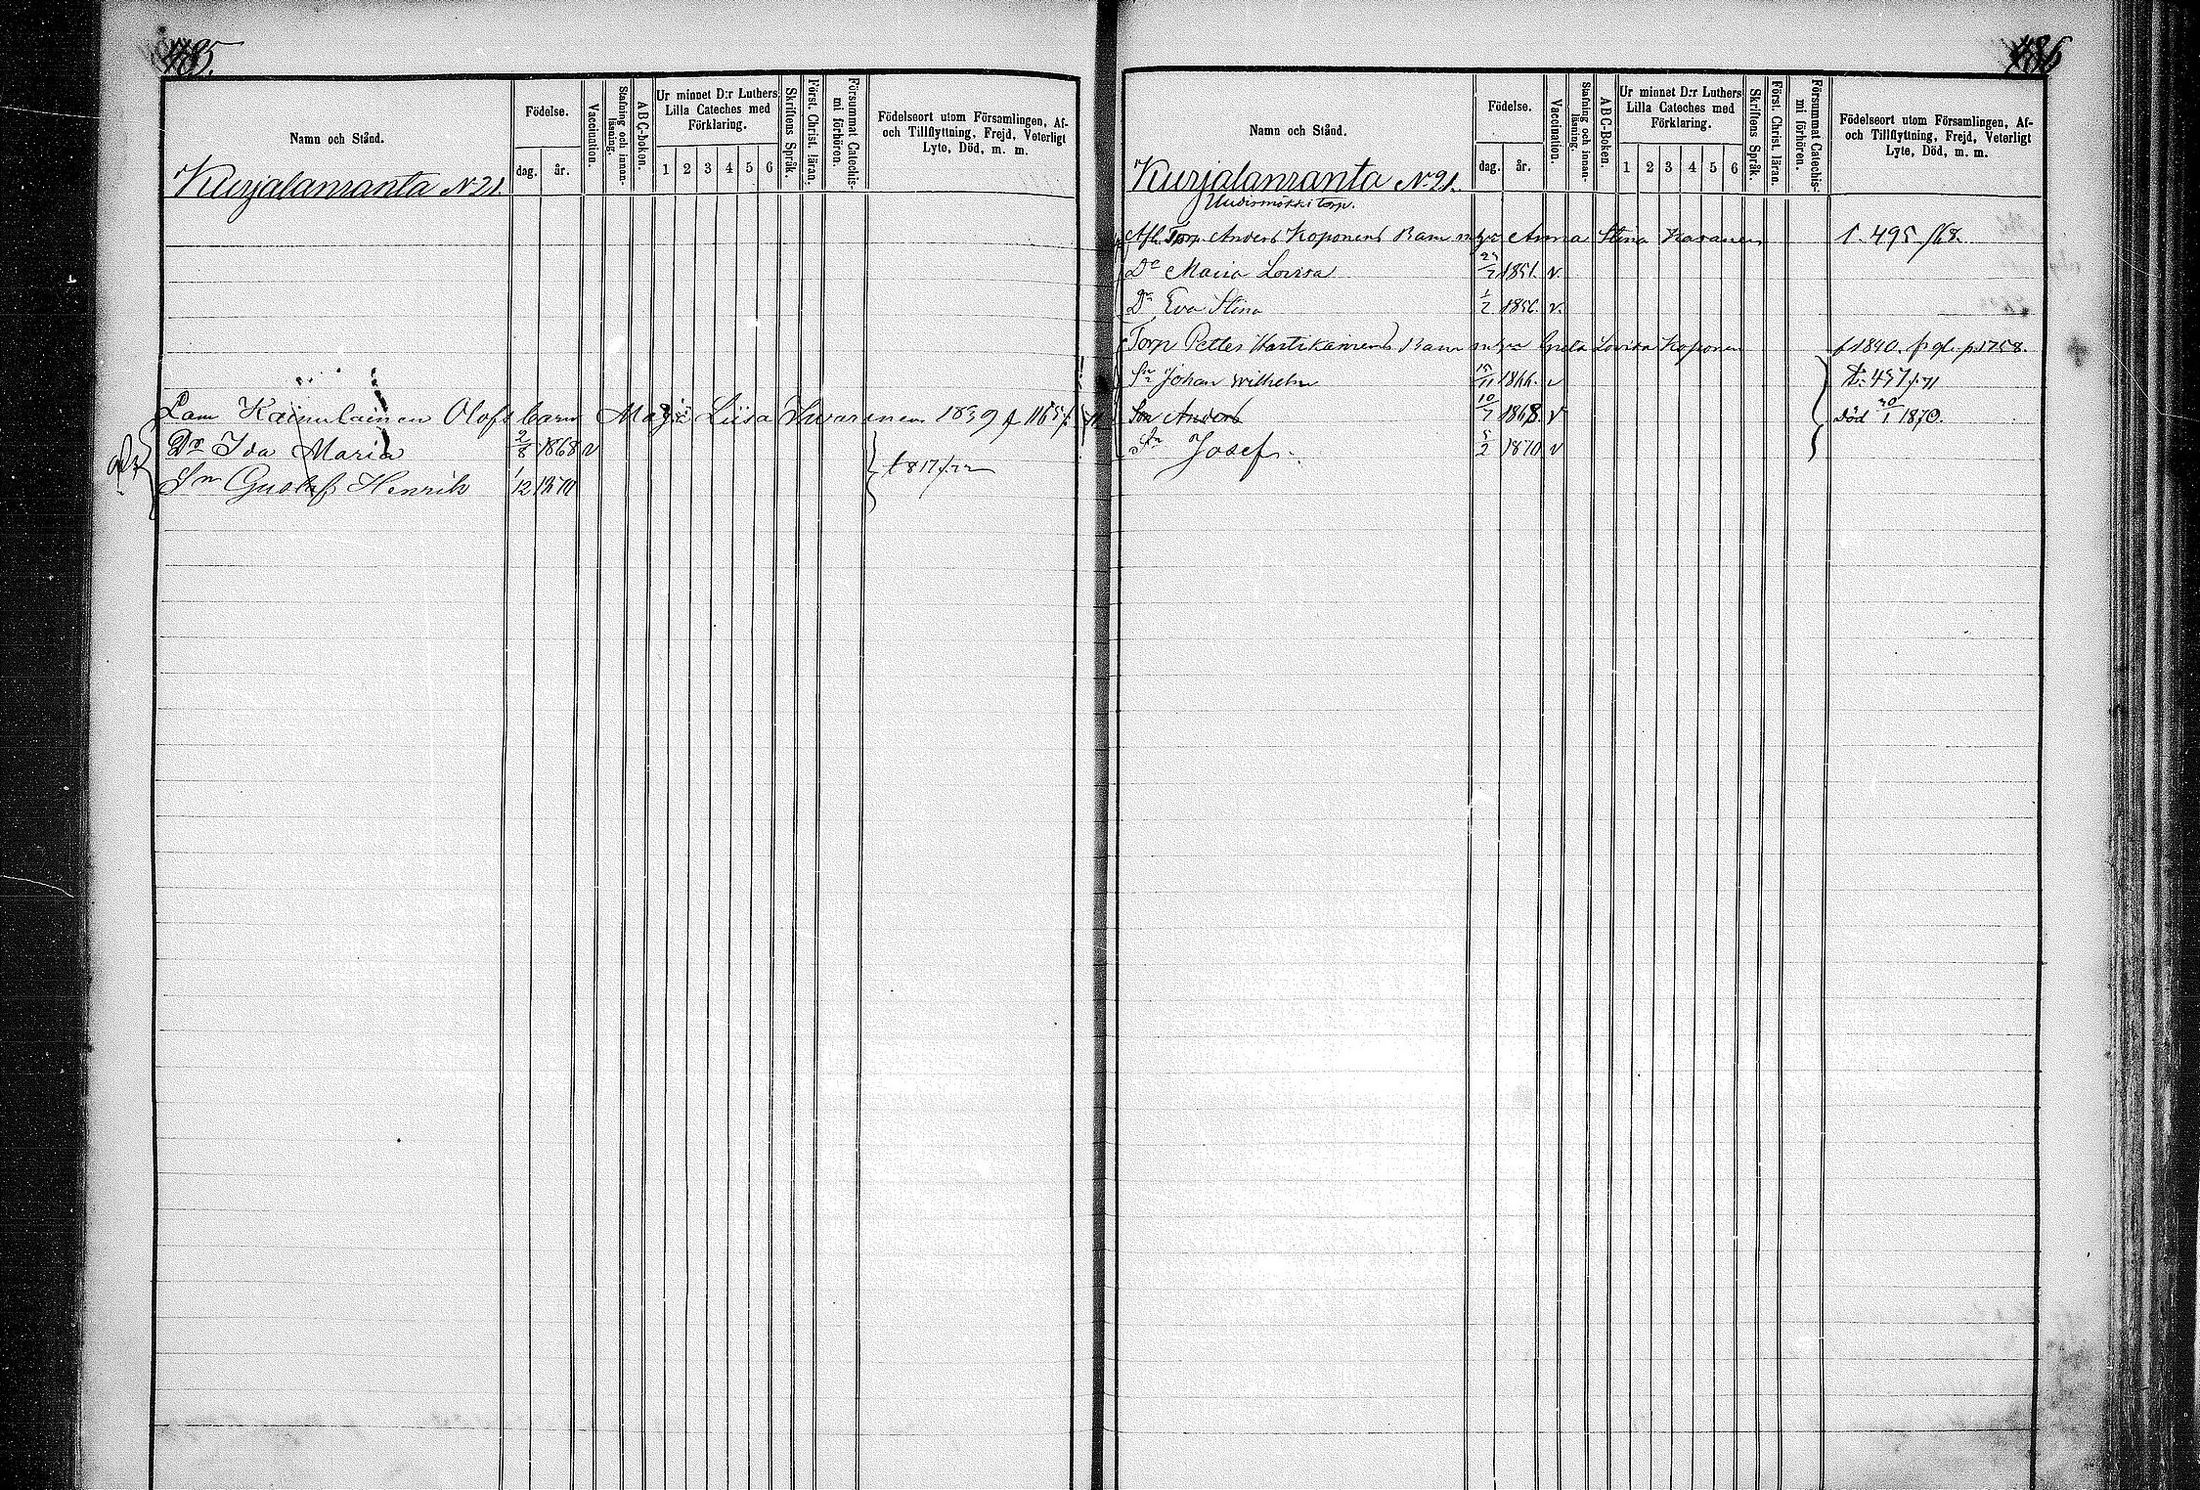 485.
Namn och Stånd.
Födelse.
dag. år.
Vaccination.
Stafning och innanläsning.
ABC-boken.
Ur minnet D:r Luthers Lilla Cateches med Förklaring.
1 2 3 4 5 6
Skriftens Språk.
Först. Christ. läran.
Försummat Catechismi förhören.
Födelseort utom Församlingen, Af- och Tillflyttning, Frejd, Veterligt Lyte, Död, m. m.
Kurjalanranta N 21.
Lam Kainulainen Olofs barn Maja Liisa 1839 f 1165
Dr Ida Maria 2/8 1868 v
Sn Gustaf Henrik /12 1870
t 817/72
486
Namn och Stånd.
Födelse.
dag. år.
Vaccination.
Stafning och innanläsning.
ABC-Boken.
Ur minnet D:r Luthers Lilla Cateches med Förklaring.
1 2 3 4 5 6
Skriftens Språk.
Först. Christ. läran.
Försummat Catechismi förhören.
Födelseort utom Församlingen, Af- och Tillflyttning, Frejd, Veterligt Lyte, Död, m. m.
Kurjalanranta N 21.
Uudismökki torp.
Afl. Torp. Anders Koponens Barn m Anna Stina t. 495 /68.
Dr Maria Lovisa 1851. v.
Dr Eva Stina 1/2 1856. v.
Torp Petter Hartikainens Barn m Greta Lovisa Koponen f 1840. p. 1758.
Sn Johan Wilhelm 15/11 1866. v t. 457/71
Sn Anders 10/7 1868. v Död 30/1 1870.
Sn Josef. 5/2 1870 v